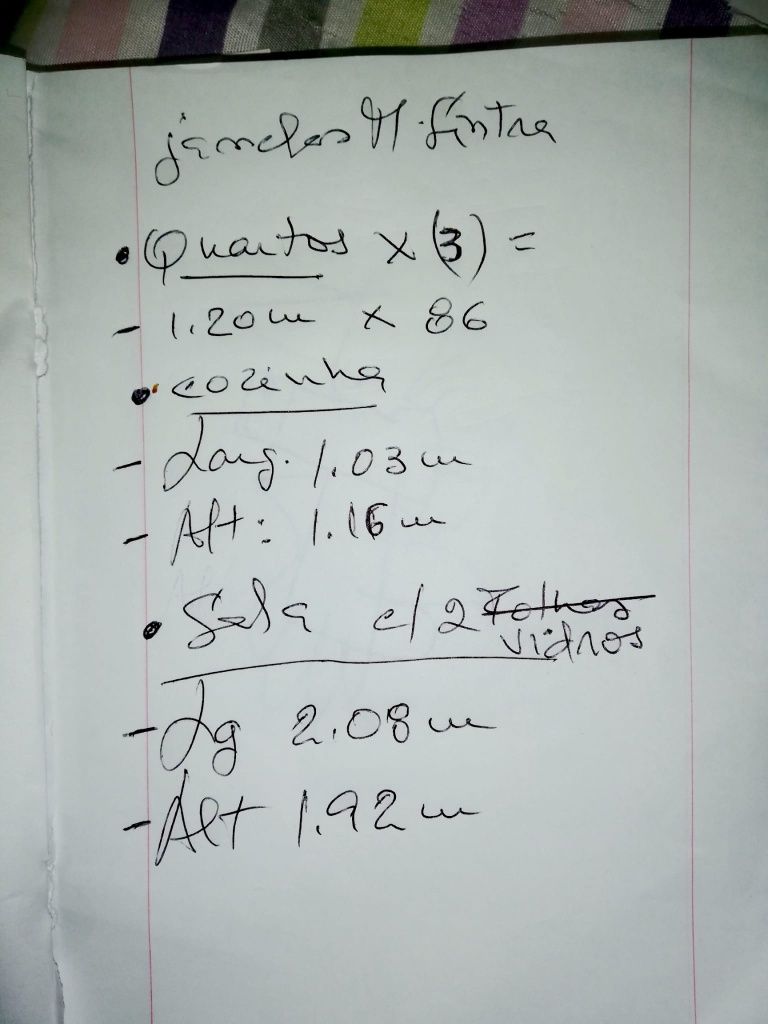 janelas M. Sintra
• Quartos x (3) =
- 1.20m x 86
• cozinha
- Larg. 1.03m
- Alt: 1.16m
• Sala c/2 Folhas
vidros
- Lg 2.08m
- Alt 1.92m